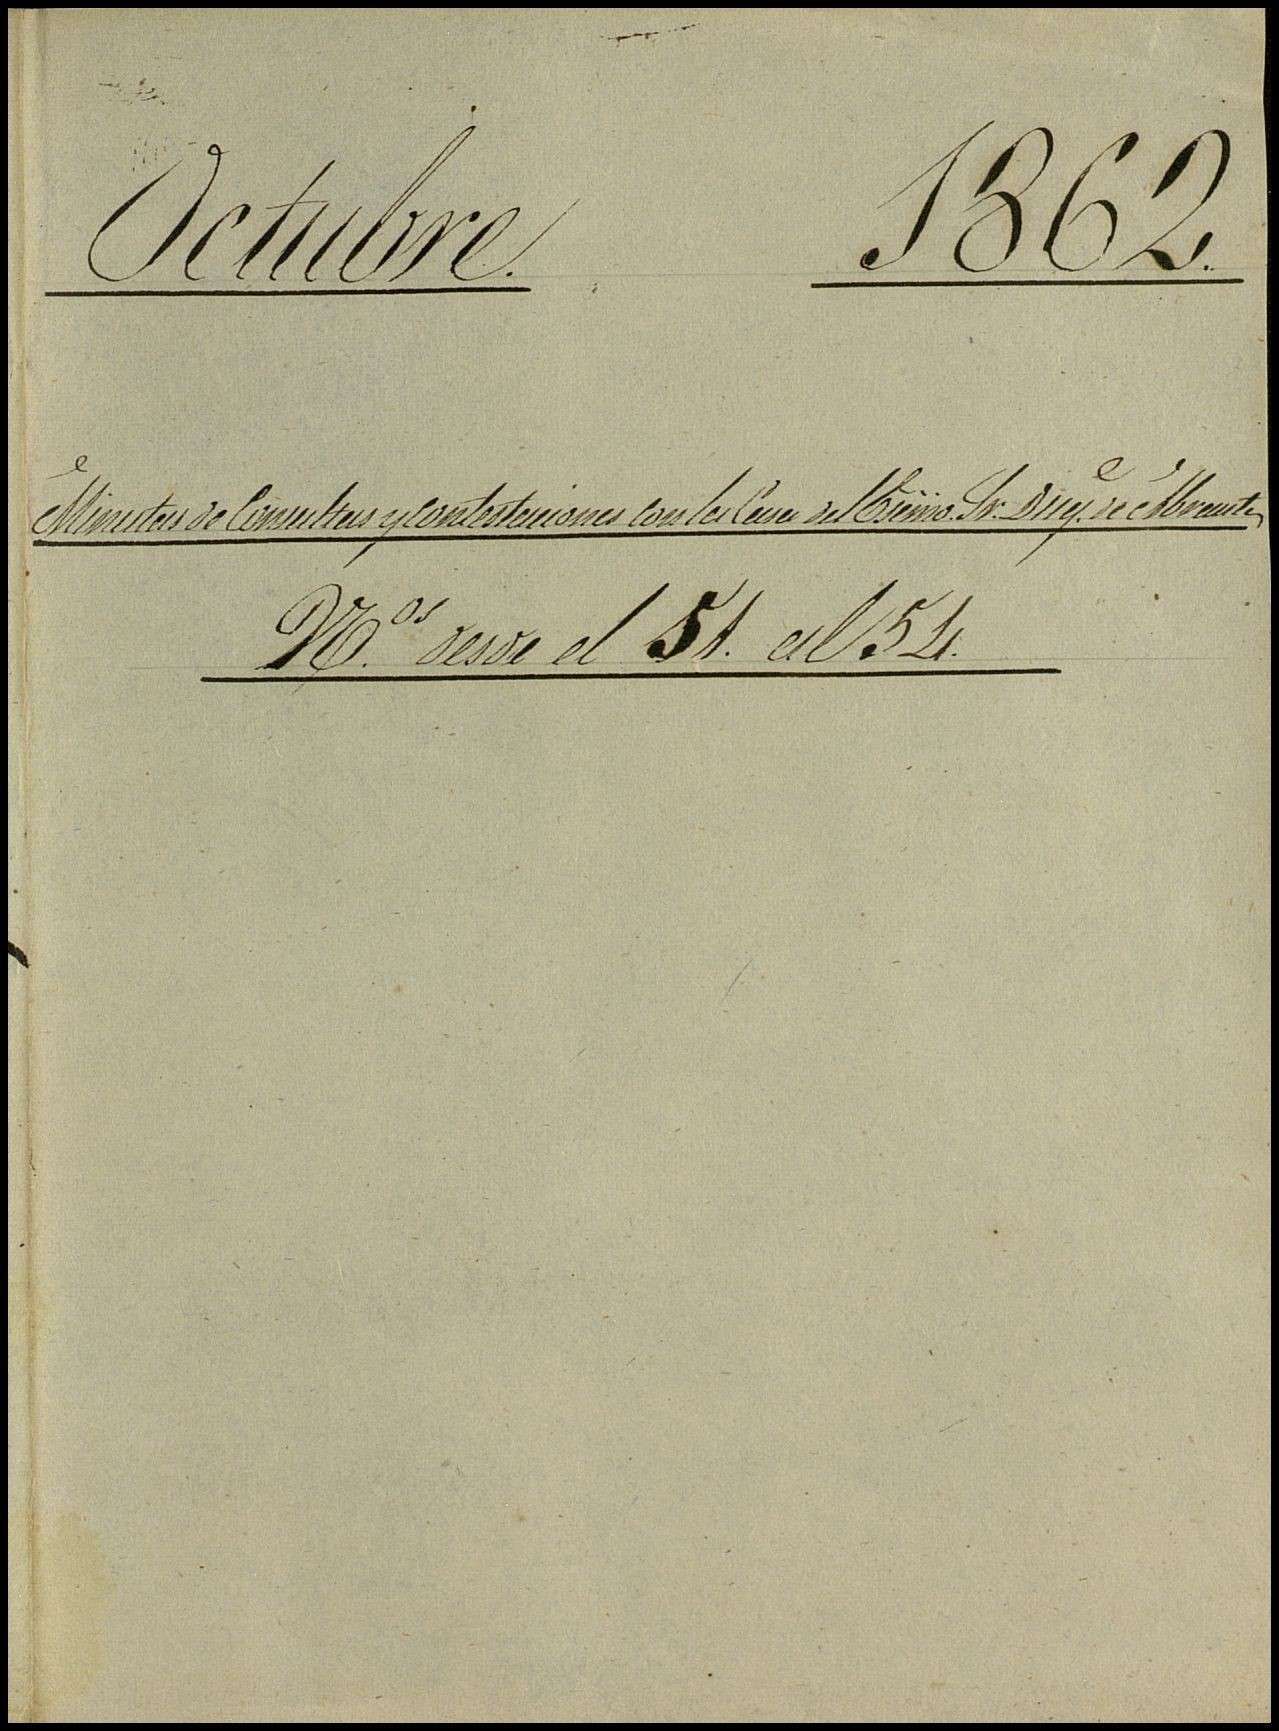 Octubre. 1862.
Minutas de Consultas y contestaciones con la Casa del Exmo. Sr. Duq.e de Abrantes
N.os desde el 51. al 54.